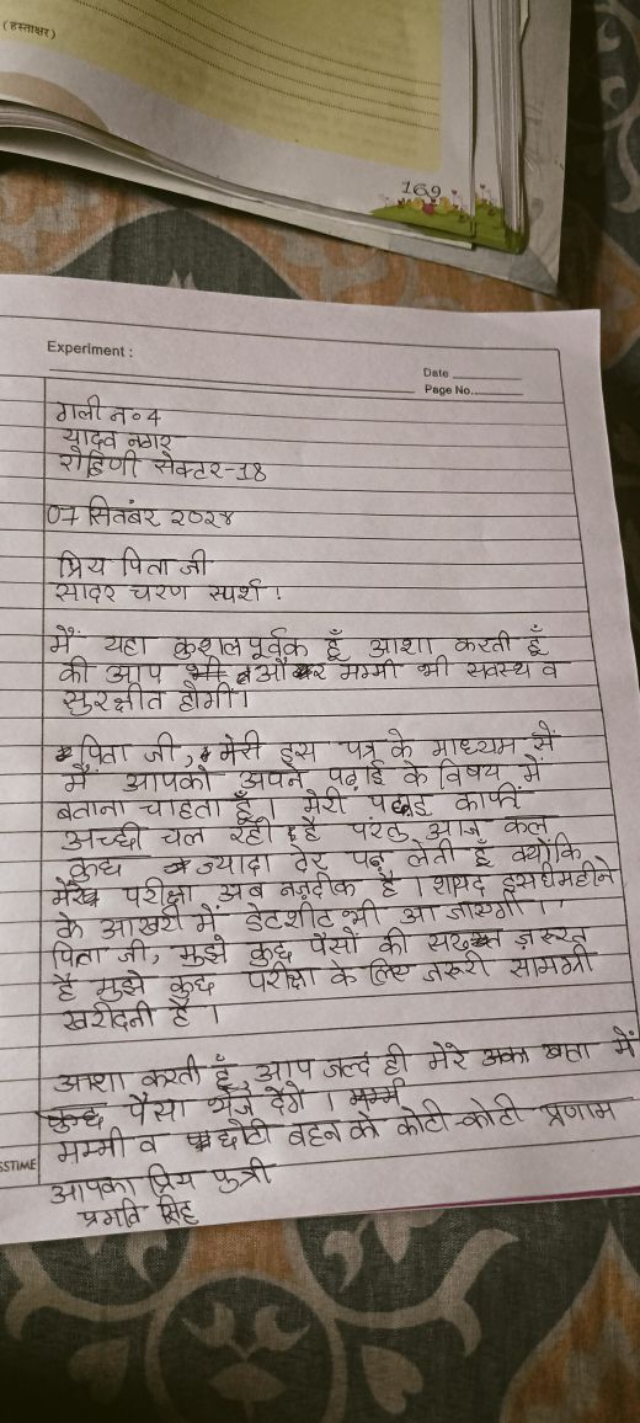 (हस्ताक्षर)
169
Experiment :
Date
Page No.
गली न० 4
यादव नगर
रोहिणी सेक्टर-18
07 सितंबर २०२४
प्रिय पिता जी
सादर चरण स्पर्श !
मैं यहा कुशलपूर्वक हूँ आशा करती हूँ
की आप भी और मम्मी भी सवस्थ व
सुरक्षीत होगीं।
पिता जी, मेरी इस पत्र के माध्यम सें
मैं आपको अपने पढ़ाई के विषय में
बताना चाहता हूँ। मेरी काफीं
अच्छी चल रही है परंतु आज कल
कुछ ज्यादा देर पढ़ लेती हूँ क्योंकि
परीक्षा अब नज़दीक है। शायद इसी महीने
के आखरी में डेटशीट भी आ जाएगी।
पिता जी, मुझे कुछ पैसों की सख्त ज़रूरत
है मुझे कुछ परीक्षा के लिए जरूरी सामग्री
खरीदनी है।
आशा करती हूँ, आप जल्द ही मेरे खाता में
कुछ पैसा भेज देंगे। मम्मी
मम्मी व छोटी बहन को कोटी-कोटी प्रणाम
SSTIME
आपका प्रिय पुत्री
प्रगति सिंह